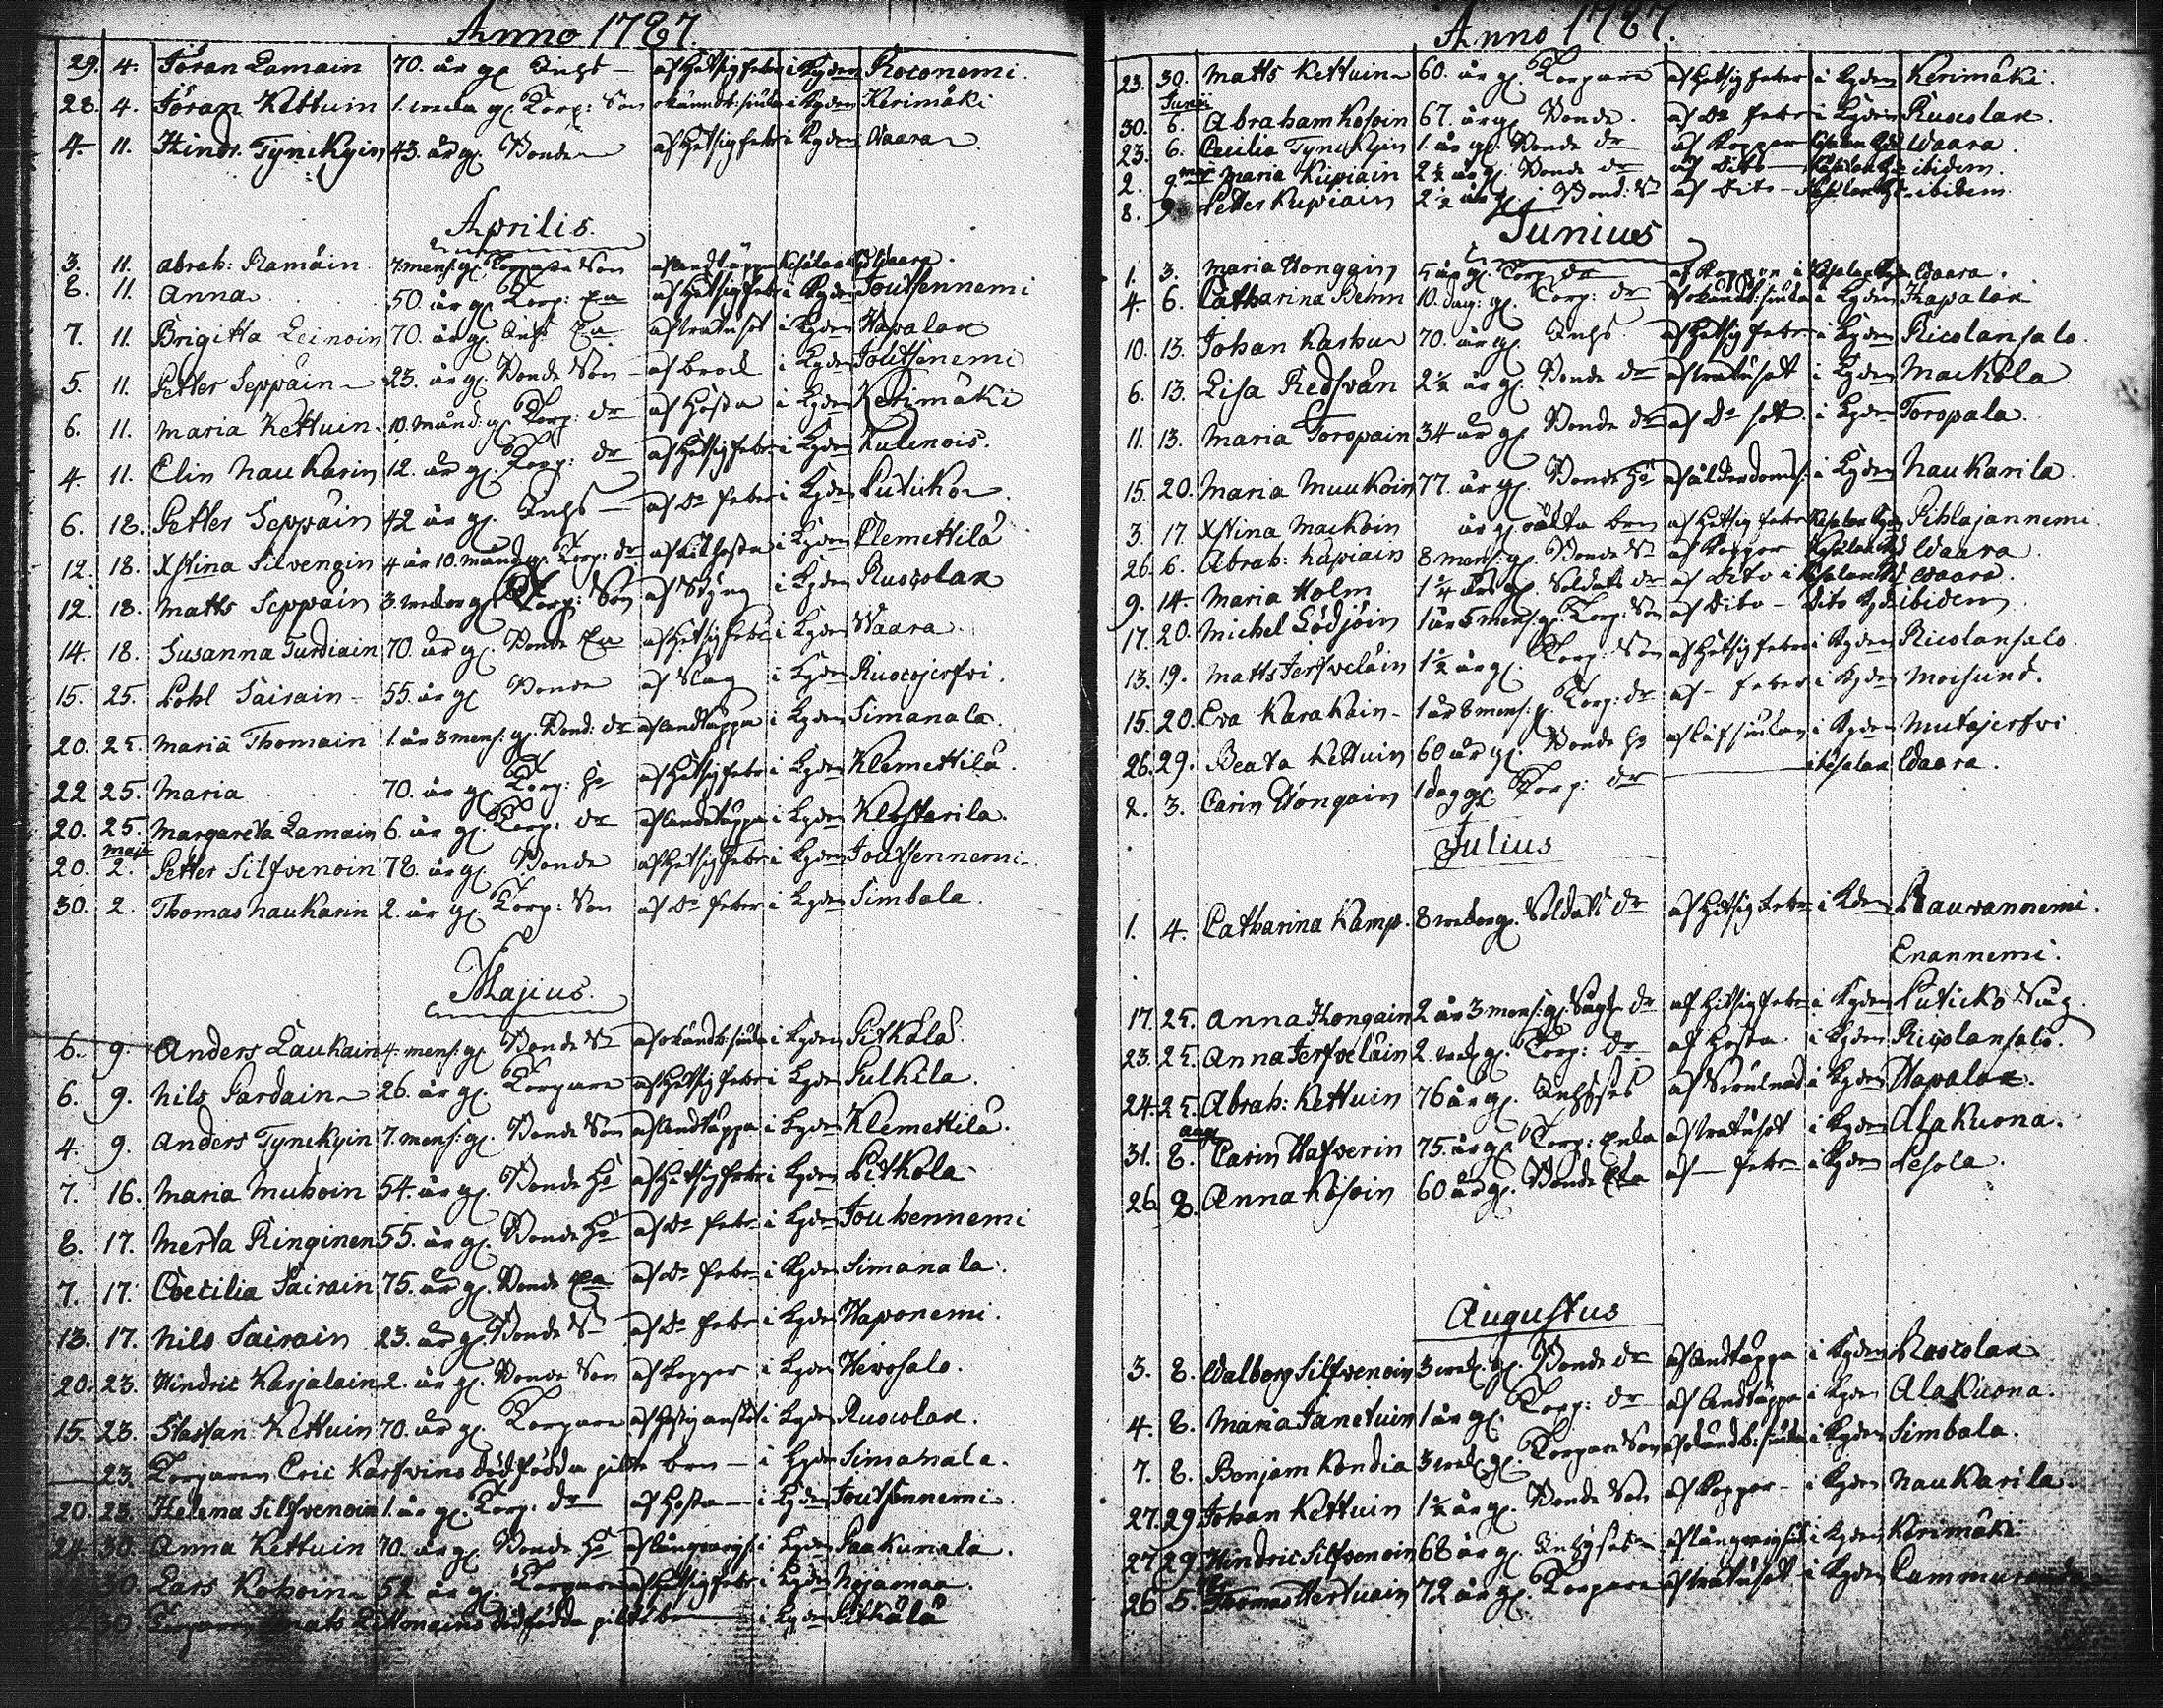 Anno 1787.
29. 4. Jöran Lamain 70. år gl Inhs — af Hetsig feber i Kyrden Roconemi.
28. 4. Jöran Kettuin 1. weca gl. Torp: Son okänd b: siuka i Kyrden Kerimäki
4. 11. Hindr. Tynckyin 43. år gl. Bonde af Hetsig feber i Kyrden Waara
Aprilis.
3. 11. Abrah: Ramäin 7 mens: gl. Torpare Son af andtäppa Waara.
8. 11. Anna 50. år gl. Torp: Ea af Hetsig feber i Kyrden Joutsennemi
7. 11. Brigitta Leinoin 70. år gl. Inhs Ea af tratusot i Kyrden Hapalax
5. 11. Petter Seppäin 23. år gl. Bonde Son af brod i Kyrden Joutsenemi
6. 11. Maria Kettuin 10. månd: gl Torp: dr af Hosta i Kyrden Kerimäki
4. 11. Elin Naukarin 12. år gl. Torp: dr af Hetsig feber i Kyrden Kulenois.
6. 18. Petter Seppäin 42 år gl. Inhs — af do feber i Kyrden Putickо
12. 18. Xstina Silvengin 4 år 10. månd gl. Torp: dr af kikhosta i Kyrden Clemettilä
12. 18. Matts Seppäin 3. wecor gl. Torp: Son af Styng i Kyrden Ruocolax
14. 18. Susanna Turdiain 70. år gl. Bonde Ea af Hetsig feber i Kyrden Waara.
15. 25. Pohl Sairain 55. år gl Bonde af Slag i Kyrden Ruocojerfvi.
20. 25. Maria Thomain 1. år 3 mens: gl. Bond: dr af andtäppa i Kyrden Simanala.
22 25. Maria 70. år gl Torp: ho af Hetsig feber i Kyrden Klemettilä.
20. 25. Margareta Lamain 6. år gl. Torp: dr af andetäppa i Kyrden Klostarila.
maji
20. 2. Petter Silfvenoin 78. år gl. Bonde af Hetsig feber i Kyrden Joutsennemi
30. 2. Thomas Naukarin 2. år gl. Torp: Son af do feber i Kyrden Simbala.
Majius.
6. 9. Anders Laukain 4 mens: gl Bonde Sn af okändb: siuka i Kyrden Pitkälä
6. 9. Nils Pardain 26. år gl. Torpare af Hetsig feber i Kyrden Pulkila.
4. 9. Anders Tynckyin 7. mens: gl. Bonde Son af andtäppa i Kyrden Klemettilä.
7. 16. Maria Muhoin 54. år gl. Bonde ho af Hetsig feber i Kyrden Pitkola
8. 17. Merta Ringinen 55. år gl. Bonde ho af do feber i Kyrden Jouhennemi
7. 17. Coecilia Sairain 75. år gl. Bonde Ea af do feber i Kyrden Simanala.
13. 17. Nils Sairain 23. år gl. Bonde Sn af do feber i Kyrden Haponemi.
20. 23. Hindric Karjalain 2. år gl. Bonde Son af koppor i Kyrden Hevosalo.
15. 23. Staffan Kettuin 70. år gl. Torpare i Kyrden Ruocolax.
23. Torparen Eric Karfvins dödfödda pilte brn — i Kyrden Simanala.
20. 23. Helena Silfvenoin 1. år gl. Torp: dr af Hosta — i Kyrden Joutsennemi.
24. 30. Anna Kettuin 70. år gl. Bonde ho i Kyrden Paakunala.
30. Lars Kohoin 52 år gl. Torpare af Hetsig feber i Kyrden Nojamaa.
30. Torparen Mats dödfödda piltebrn i Kyrden Pitkälä
Anno 1787.
23. 30. Matts Kettuin 60. år gl. Torpare af Hetsig feber i Kyrden Kerimäki.
Junii
30. 6. Abraham Kosoin 67. år gl. Bonde. af do feber i Kyrden Ruocolax.
23. 6. Cecilia Tynckyin 1. år gl. Bonde dr af Koppor Waara.
2. 9. Maria Kupiain 2½ år gl. Bonde dr af Dito ibidem.
8. 9. Petter Kupiain 2½ år gl Bond: Sn af Dito — ibidem
Junius
1. 3. Maria Wonggin 5 år gl. Torp dr af Koppor i Waara.
4. 6. Catharina Behm 10. dag: gl. Torp: dr af okändb: siuka i Kyrden Hapalax
10. 13. Johan Karhu 70. år gl. Inhs af Hetsig feber i Kyrden Ricolansalo.
6. 13. Lisa Redsvan 2½ år gl. Bonde dr af tratusot i Kyrden Mackola
11. 13. Maria Toropain 34 år gl. Bonde dr af do sot i Kyrden Toropala.
15. 20. Maria Muukoin 77. år gl. Bonde ho af ålderdoms: i Kyrden Naukarila
3. 17. Xstina Mackoin år gl. oäkta brn af Hetsig feber Pihlajannemi.
26. 6. Abrah: Kupiain 8 mens: gl. Bonde Sn af Koppor Waara.
9. 14. Maria Holm 1¼ års gl. Soldats dr af Dito i Waara.
17. 20. Michel Södjöin 1 år 5 mens: gl. Torp: Son af Dito — Dito ibidem.
13. 19. Matts Jerfveläin 1½ år gl. Torp: Son af Hetsig feber i Kyrden Ricolansalo.
15. 20. Eva Karakain 1 år 8 mens: gl. Torp: dr af — feber i Kyrden Moisund.
26. 29. Beata Kettuin 60 år gl. Bonde ho i Kyrden Mutajerfvi
2. 3. Carin Wongain 1 dag gl. Torp: dr i Waara.
Julius
1. 4. Catharina Kamp. 8 wecor gl. Soldats dr af Hetsig feber i Kyrden Rauvannemi.
Enannemi.
17. 25. Anna Kongain 2 år 3 mens: gl. dr af Hetsig feber i Kyrden Puticko
23. 25. Anna Jerfveläin 2. gl. Torp: dr af Hosta i Kyrden Ricolansalo.
24. 25. Abrah: Kettuin 76 år gl. Inhyses i Kyrden Hapalax.
aug
31. 8. Carin Hafverin 75. år gl Torp: Enka af tratusot i Kyrden Alakuona.
26. 8. Anna Kosoin 60 år gl. Bonde Ea af — feber i Kyrden Pesola.
Augustus
3. 8. Walborg Silfvenoin 3 gl. Bonde dr af andtäppa i Kyrden Ruocolax
4. 8. Maria Janetuin 1 år gl. Torp: dr af andtäppa i Kyrden Alakuona.
7. 8. Benjam Kondia 3 gl. Torpare Son af okändb: siuka i Kyrden Simbala.
27. 29 Johan Kettuin 1½ år gl. Bonde Son af Koppor — i Kyrden Naukarila.
27 29 Hindric Silfvenoin 68 år gl. Inhyses i Kyrden Kerimäki.
26 5. Thomas Hertuain 72 år gl. Torpare af tratusot i Kyrden